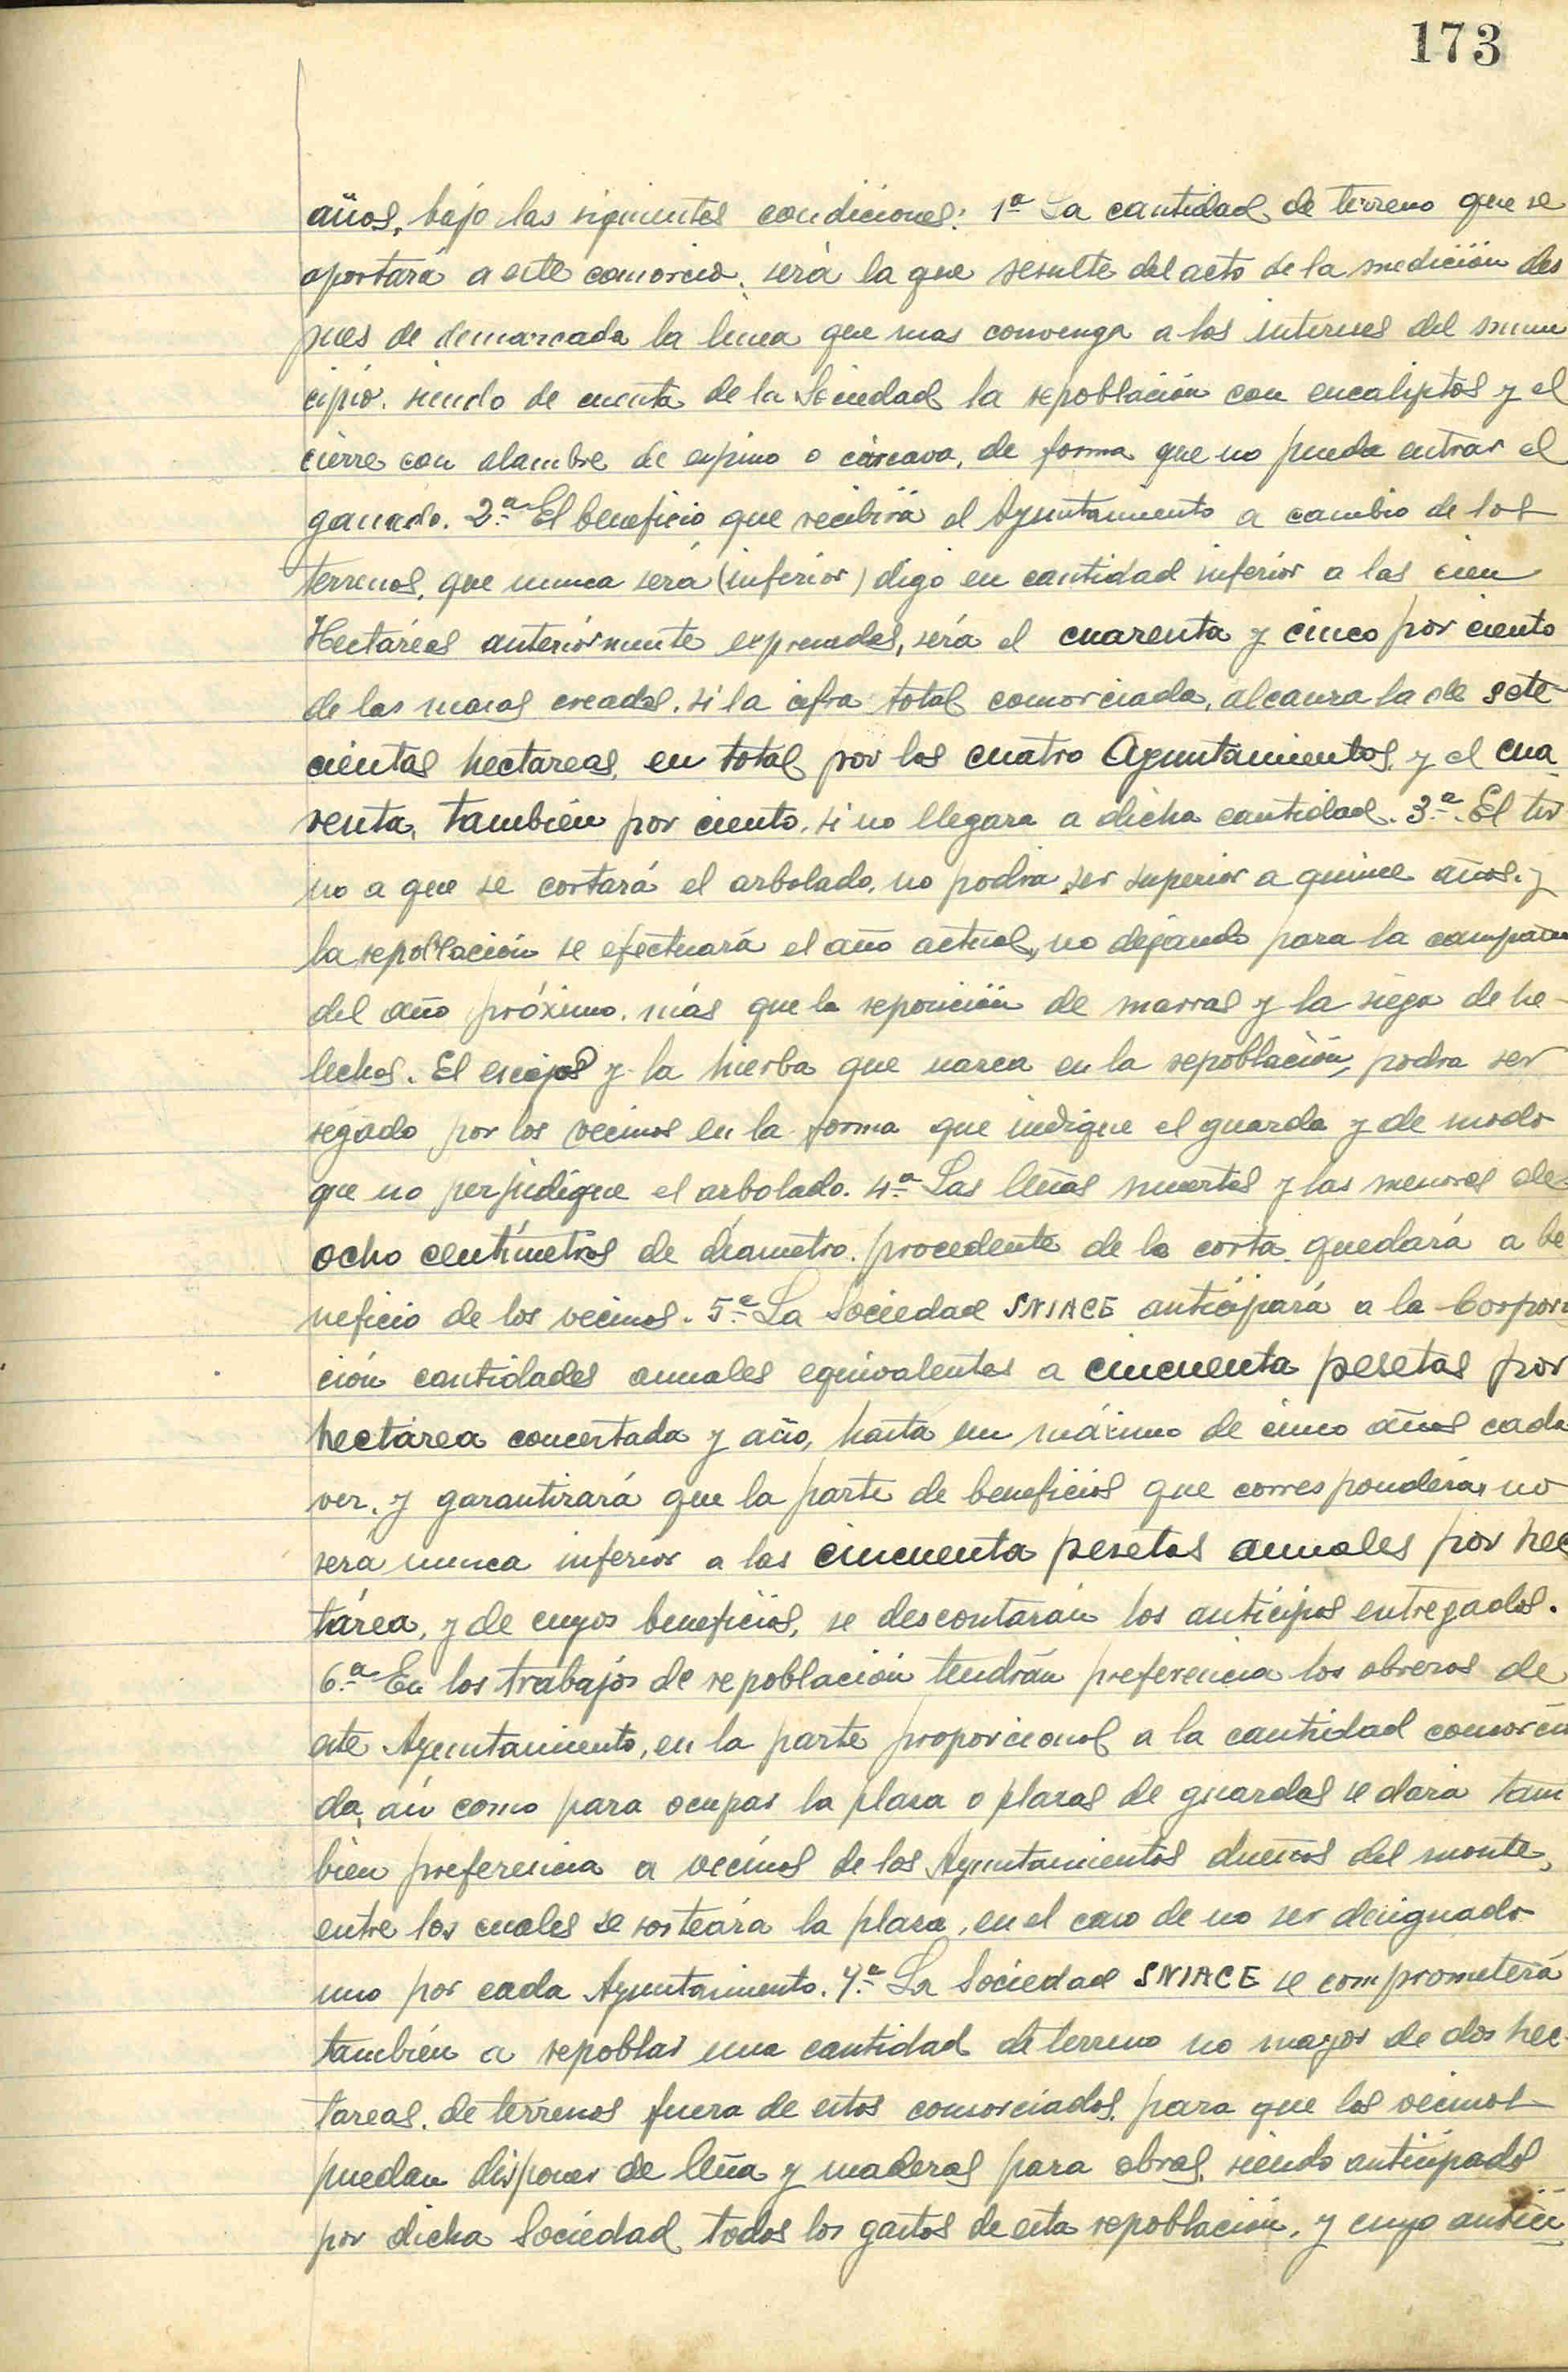 173
años, bajo las siguientes condiciones: 1ª La cantidad de terreno que se
aportará a este consorcio, será la que resulte del acto de la medición des
pues de demarcada la linea que mas convenga a los interses del muni
cipio, siendo de cuenta de la Sociedad la repoblación con eucaliptos y el
cierre con alambre de espino o cárcava, de forma que no pueda entrar el
ganado. 2.ª El beneficio que recibirá el Ayuntamiento a cambio de los
terrenos, que nunca será (inferior) digo en cantidad inferior a las cien
Hectáreas anteriormente expresadas, será el cuarenta y cinco por ciento
de las masas creadas, si la cifra total consorciada, alcanza la de sete-
cientas hectareas, en total por los cuatro Ayuntamientos, y el cua
renta, también por ciento, si no llegara a dicha cantidad. 3.ª El tur
no a que se cortará el arbolado, no podra ser superior a quince años, y
la repoblación se efectuará el año actual, no dejando para la campaña
del año próximo, más que la reposición de marras y la siega de he-
lechos. El escajos y la hierba que nazca en la repoblación, podra ser
segado por los vecinos en la forma que indique el guarda y de modo
que no perjudique el arbolado. 4.ª Las leñas muertas y las menores de
ocho centímetros de diámetro, procedente de la corta, quedará a be
neficio de los vecinos. 5.ª La Sociedad SNIACE anticipará a la Corpora
ción cantidades anuales equivalentes a cincuenta pesetas por
hectárea concertada y año, hasta un máximo de cinco años cada
vez, y garantizará que la parte de beneficios que corresponderá, no
será nunca inferior a las cincuenta pesetas anuales por hec
tárea, y de cuyos beneficios, se descontarán los anticipos entregados.
6.ª En los trabajos de repoblación tendrán preferencia los obreros de
este Ayuntamiento, en la parte proporcional a la cantidad consorcia
da, así como para ocupar la plaza o plazas de guardas se dará tam
bien preferencia a vecinos de los Ayuntamientos dueños del monte,
entre los cuales se sorteára la plaza, en el caso de no ser designado
uno por cada Ayuntamiento. 7.ª La Sociedad SNIACE se comprometerá
también a repoblar una cantidad de terreno no mayor de dos hec
tareas, de terrenos fuera de estos consorciados, para que los vecinos
puedan disponer de leña y maderas para obras, siendo anticipado
por dicha Sociedad todos los gastos de esta repoblación, y cuyo antici